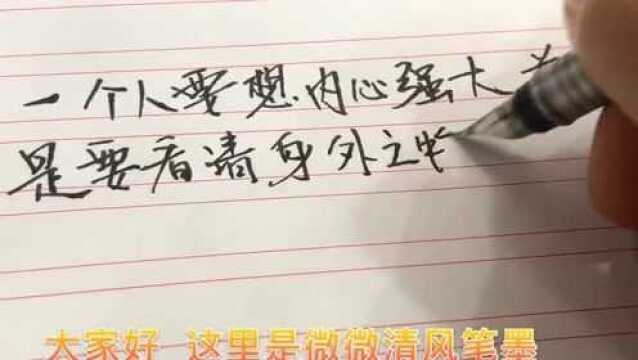 一个人要想内心强大
是要看清身外之
大家好 这里是微微清风笔墨